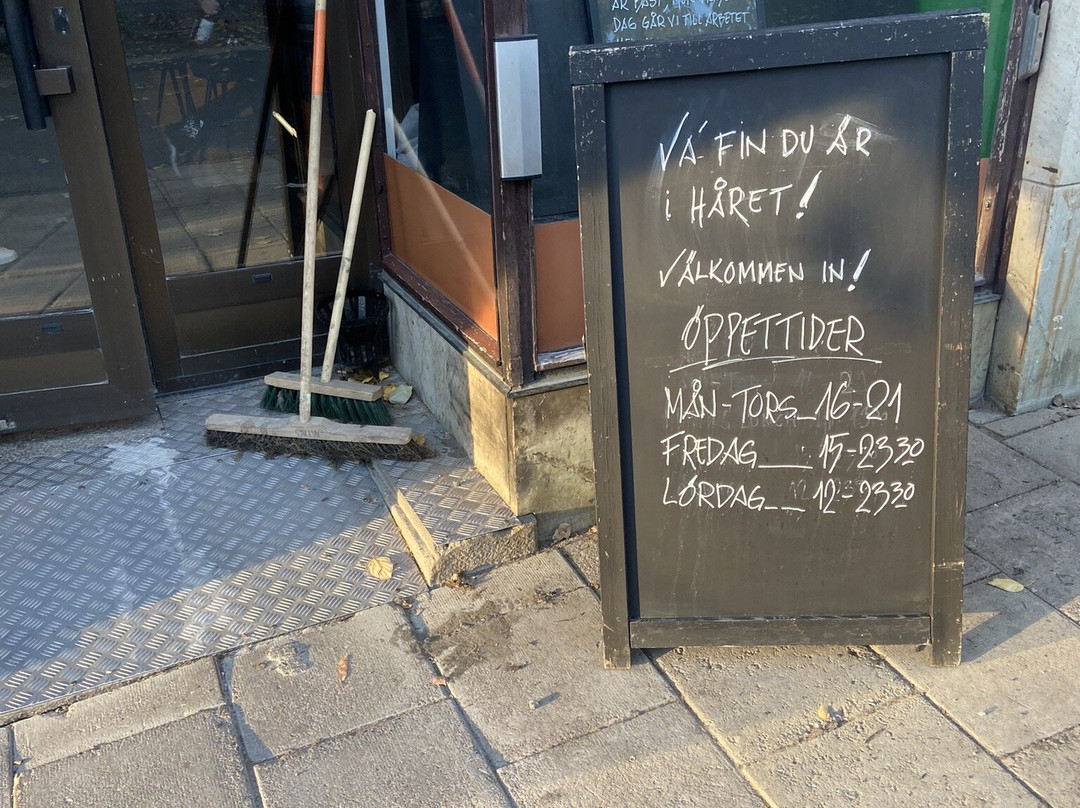 ÄR BÄST,
DAG GÅR VI TILL ARBETET
VA' FIN DU ÄR
i HÅRET!
VÄLKOMMEN IN!
ÖPPETTIDER
MÅN-TORS_16-21
FREDAG__15-2330
LÖRDAG__12-2330